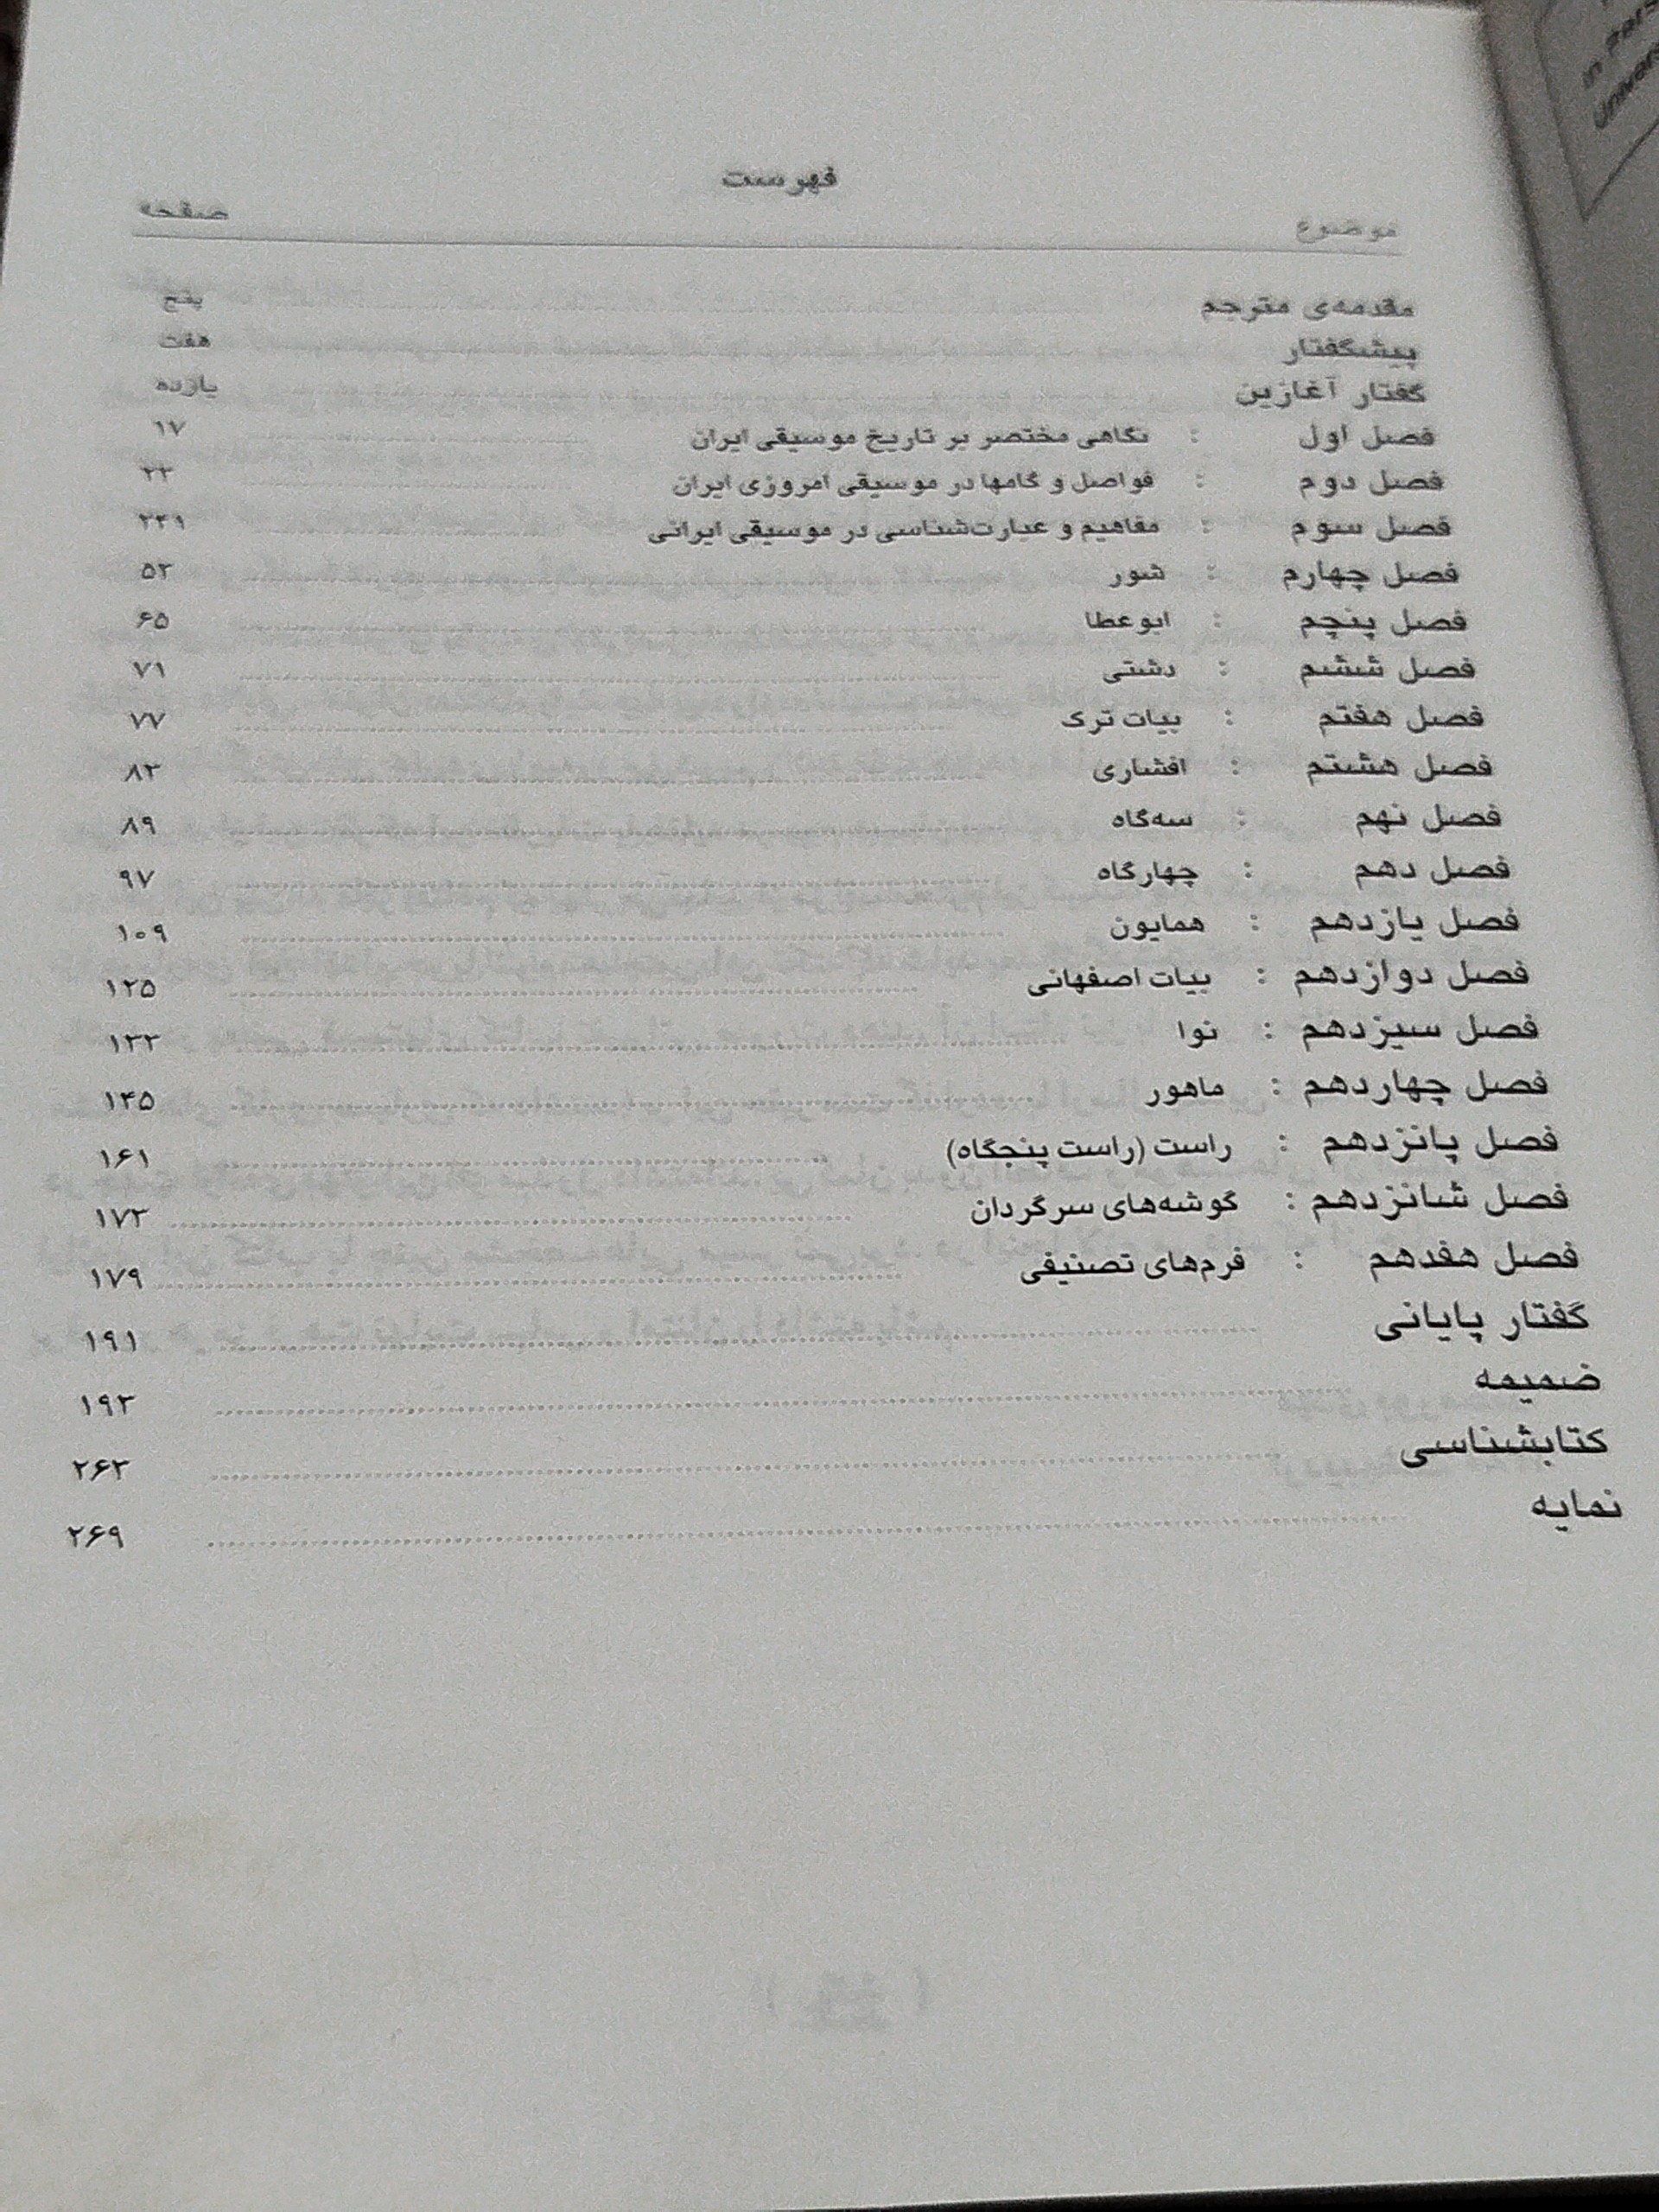 فهرست
موضوع صفحه
مقدمه‌ی مترجم پنج
پیشگفتار هفت
گفتار آغازین یازده
فصل اول : نگاهی مختصر بر تاریخ موسیقی ایران ۱۷
فصل دوم : فواصل و گامها در موسیقی امروزی ایران ۲۳
فصل سوم : مفاهیم و عبارت‌شناسی در موسیقی ایرانی
فصل چهارم : شور ۵۳
فصل پنجم : ابوعطا ۶۵
فصل ششم : دشتی ۷۱
فصل هفتم : بیات ترک ۷۷
فصل هشتم : افشاری ۸۳
فصل نهم : سه‌گاه ۸۹
فصل دهم : چهارگاه ۹۷
فصل یازدهم : همایون ۱۰۹
فصل دوازدهم : بیات اصفهانی ۱۲۵
فصل سیزدهم : نوا ۱۳۳
فصل چهاردهم : ماهور ۱۴۵
فصل پانزدهم : راست (راست پنجگاه) ۱۶۱
فصل شانزدهم : گوشه‌های سرگردان ۱۷۳
فصل هفدهم : فرم‌های تصنیفی ۱۷۹
گفتار پایانی ۱۹۱
ضمیمه ۱۹۳
کتابشناسی ۲۶۳
نمایه ۲۶۹